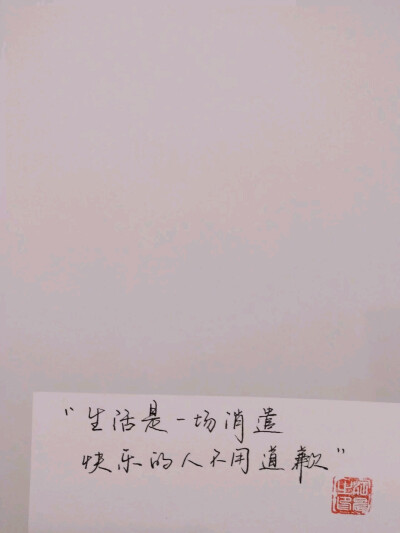 “生活是一场消遣
快乐的人不用道歉”